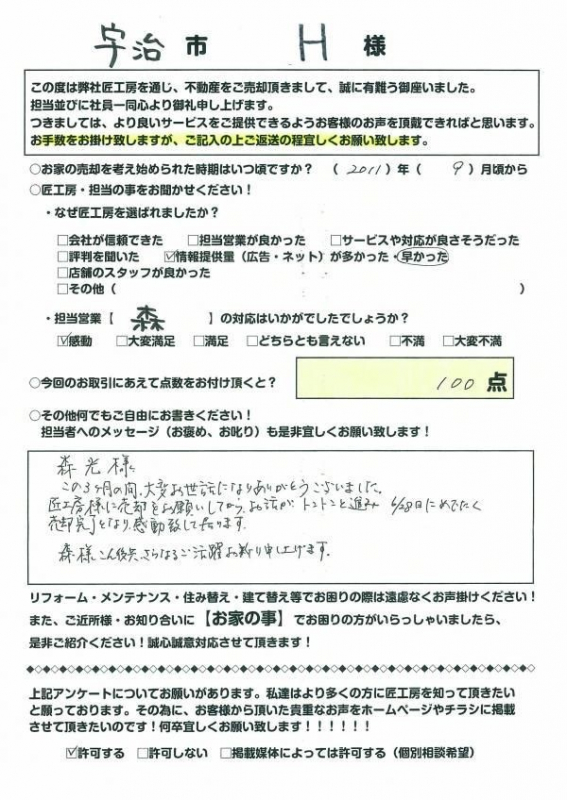 宇治 市 H 様
この度は弊社匠工房を通じ、不動産をご売却頂きまして、誠に有難う御座いました。
担当並びに社員一同心より御礼申し上げます。
つきましては、より良いサービスをご提供できるようお客様のお声を頂戴できればと思います。
お手数をお掛け致しますが、ご記入の上ご返送の程宜しくお願い致します。
○お家の売却を考え始められた時期はいつ頃ですか? ( 2011 )年( 9 )月頃から
○匠工房・担当の事をお聞かせください!
・なぜ匠工房を選ばれましたか?
□会社が信頼できた □担当営業が良かった □サービスや対応が良さそうだった
□評判を聞いた ☑情報提供量(広告・ネット)が多かった・早かった
□店舗のスタッフが良かった
□その他( )
・担当営業【 森 】の対応はいかがでしたでしょうか?
☑感動 □大変満足 □満足 □どちらとも言えない □不満 □大変不満
○今回のお取引にあえて点数をお付け頂くと? 100 点
○その他何でもご自由にお書きください!
担当者へのメッセージ(お褒め、お叱り)も是非宜しくお願い致します!
森 光 様
この3ヶ月の間、大変お世話になりありがとうございました。
匠工房様に売却をお願いしてから、お話がトントンと進み 6/28日にめでたく
売却完了となり、感動致して居ります。
森様 今後共、さらなるご活躍お祈り申し上げます。
リフォーム・メンテナンス・住み替え・建て替え等でお困りの際は遠慮なくお声掛けください!
また、ご近所様・お知り合いに【お家の事】でお困りの方がいらっしゃいましたら、
是非ご紹介ください!誠心誠意対応させて頂きます!
上記アンケートについてお願いがあります。私達はより多くの方に匠工房を知って頂きたい
と願っております。その為に、お客様から頂いた貴重なお声をホームページやチラシに掲載
させて頂きたいのです!何卒宜しくお願い致します!!!!!!
☑許可する □許可しない □掲載媒体によっては許可する(個別相談希望)